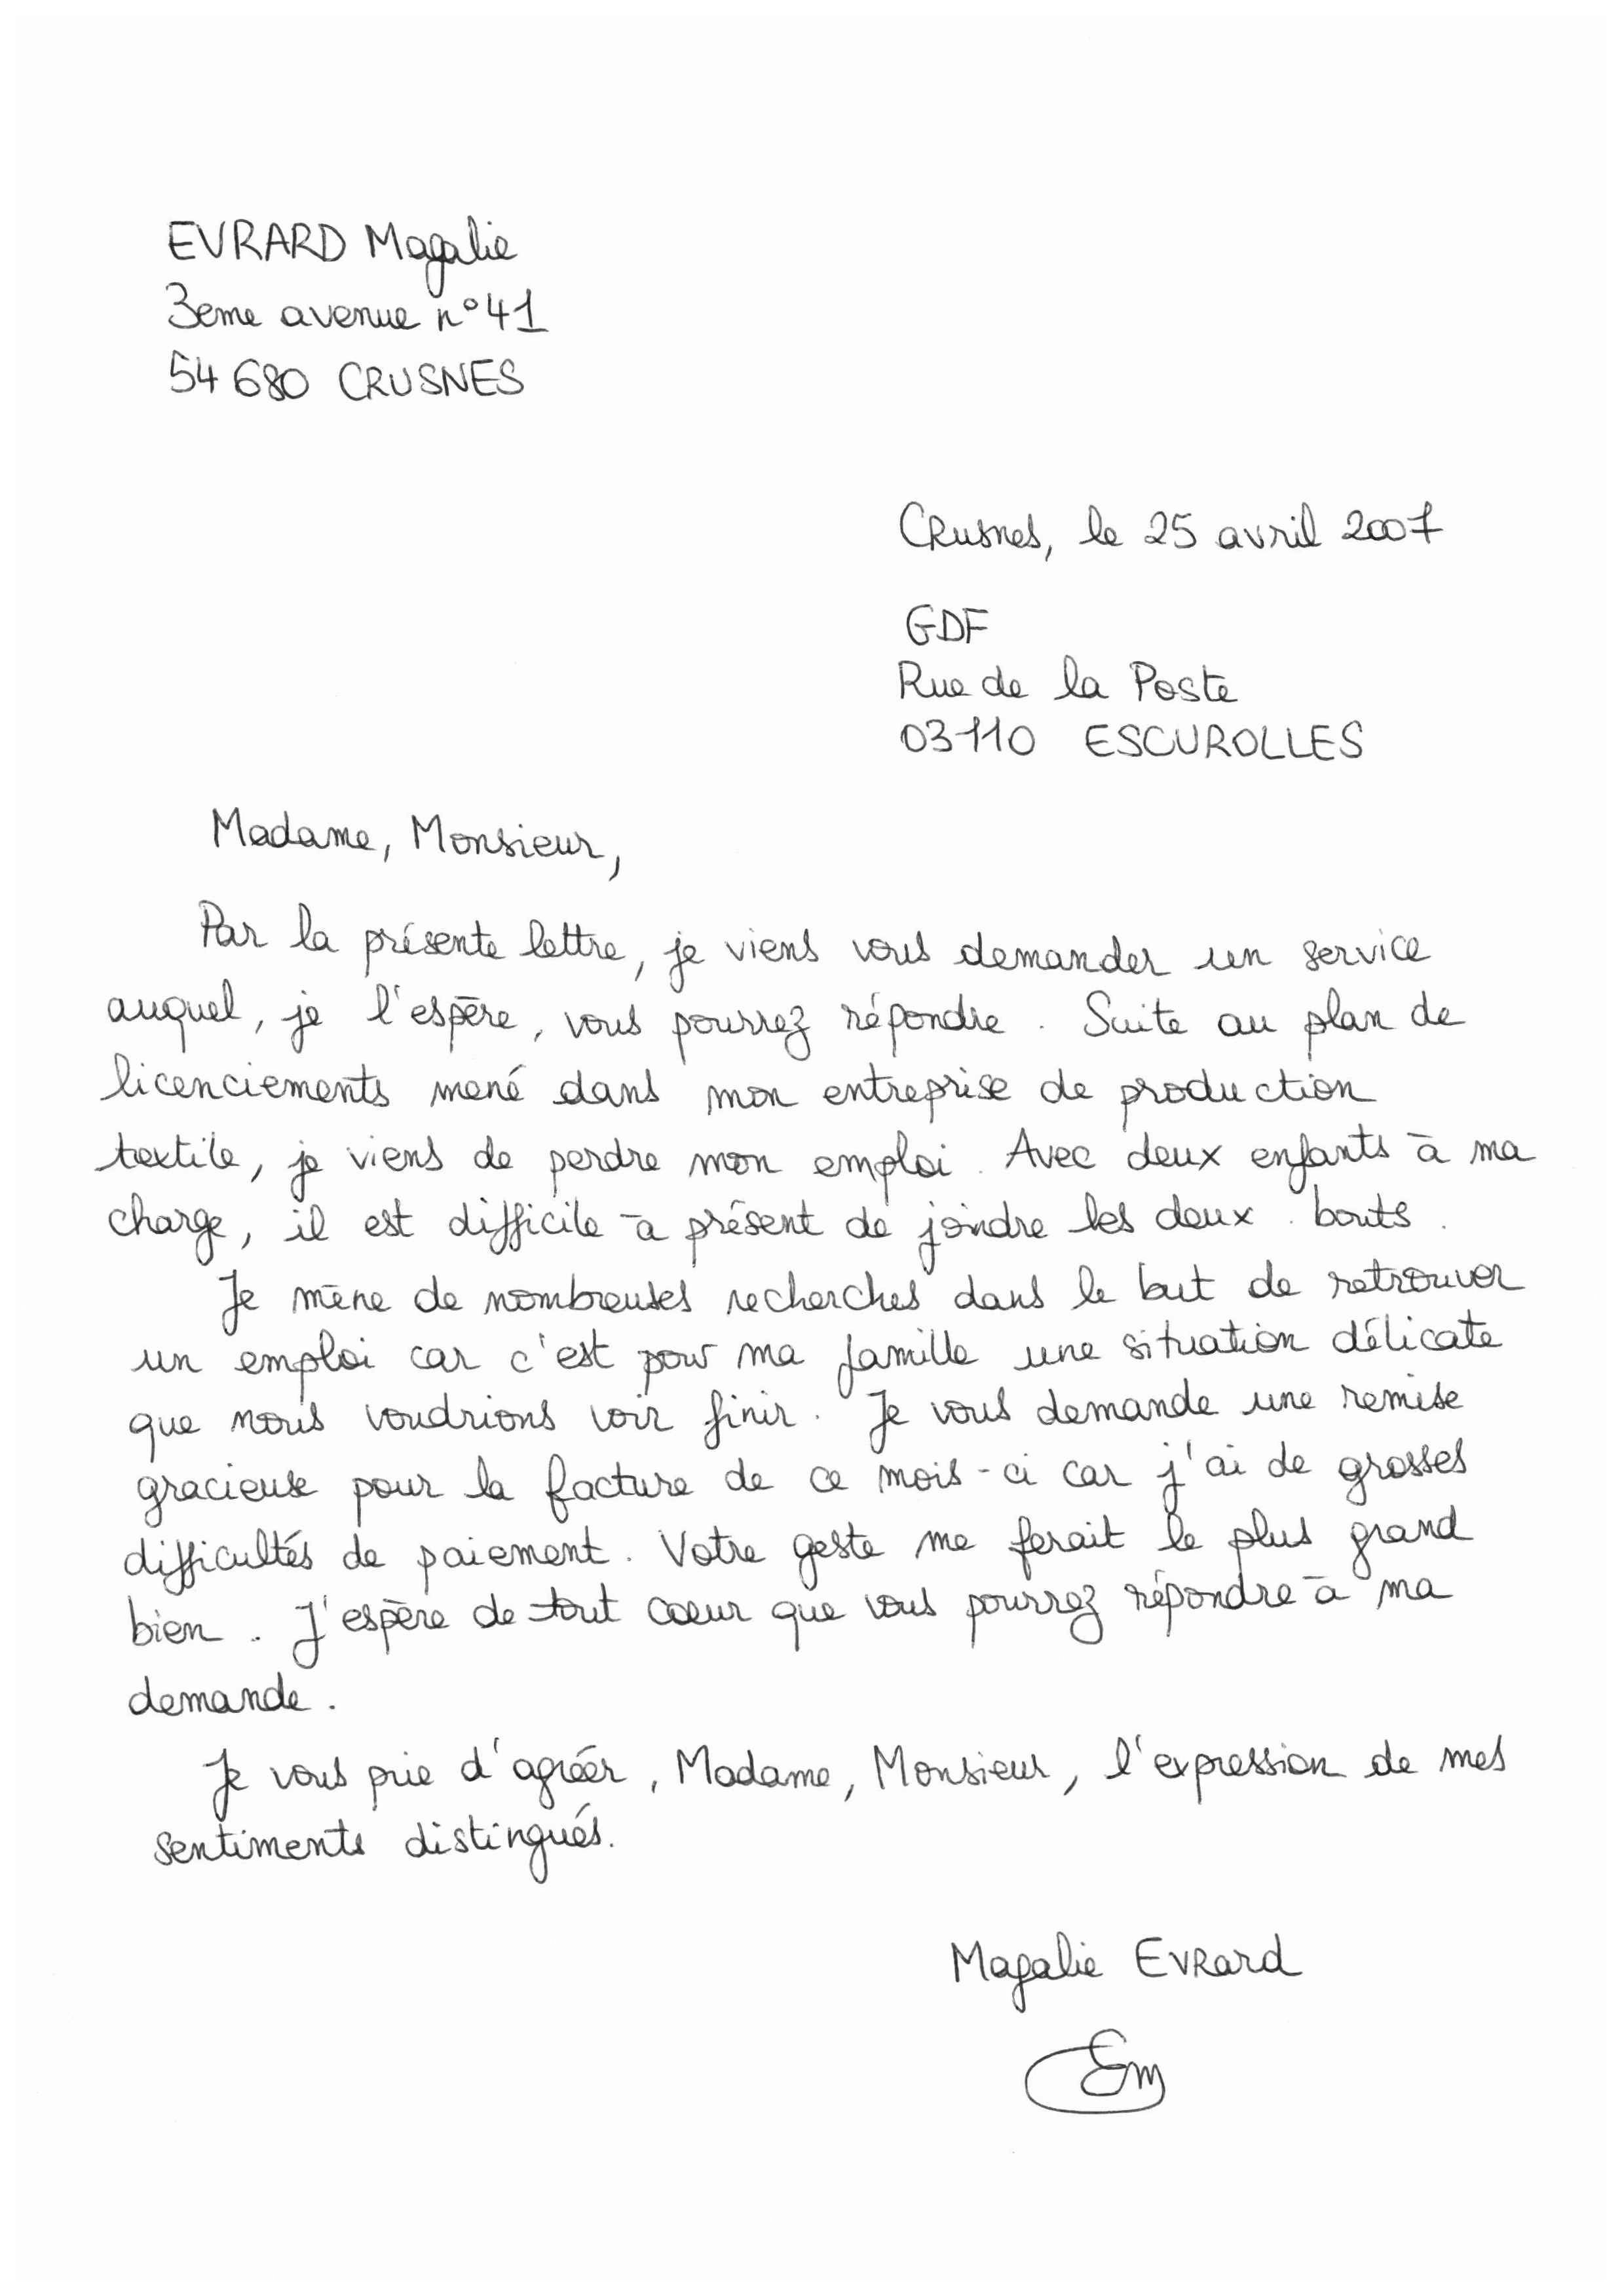 EVRARD Magalie
3eme avenue n°41
54 680 CRUSNES
Crusnes, le 25 avril 2007
GDF
Rue de la Poste
03110 ESCUROLLES
Madame, Monsieur,
Par la présente lettre, je viens vous demander un service
auquel, je l'espère, vous pourrez répondre. Suite au plan de
licenciements mené dans mon entreprise de production
textile, je viens de perdre mon emploi. Avec deux enfants à ma
charge, il est difficile à présent de joindre les deux bouts.
Je mène de nombreuses recherches dans le but de retrouver
un emploi car c'est pour ma famille une situation délicate
que nous voudrions voir finir. Je vous demande une remise
gracieuse pour la facture de ce mois-ci car j'ai de grosses
difficultés de paiement. Votre geste me ferait le plus grand
bien. J'espère de tout cœur que vous pourrez répondre à ma
demande.
Je vous prie d'agréer, Madame, Monsieur, l'expression de mes
sentiments distingués.
Magalie Evrard
Em